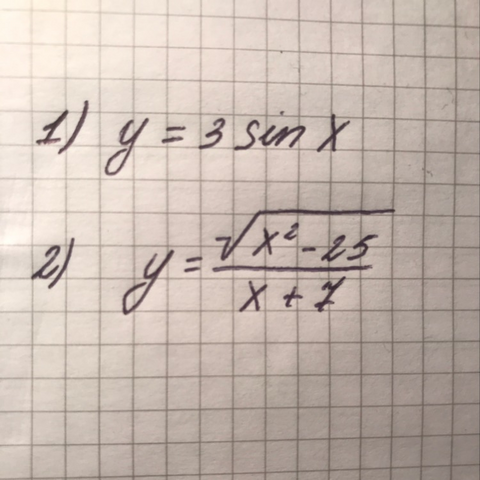 1) y = 3 sin x
2) y = √(x² - 25) / (x + 7)